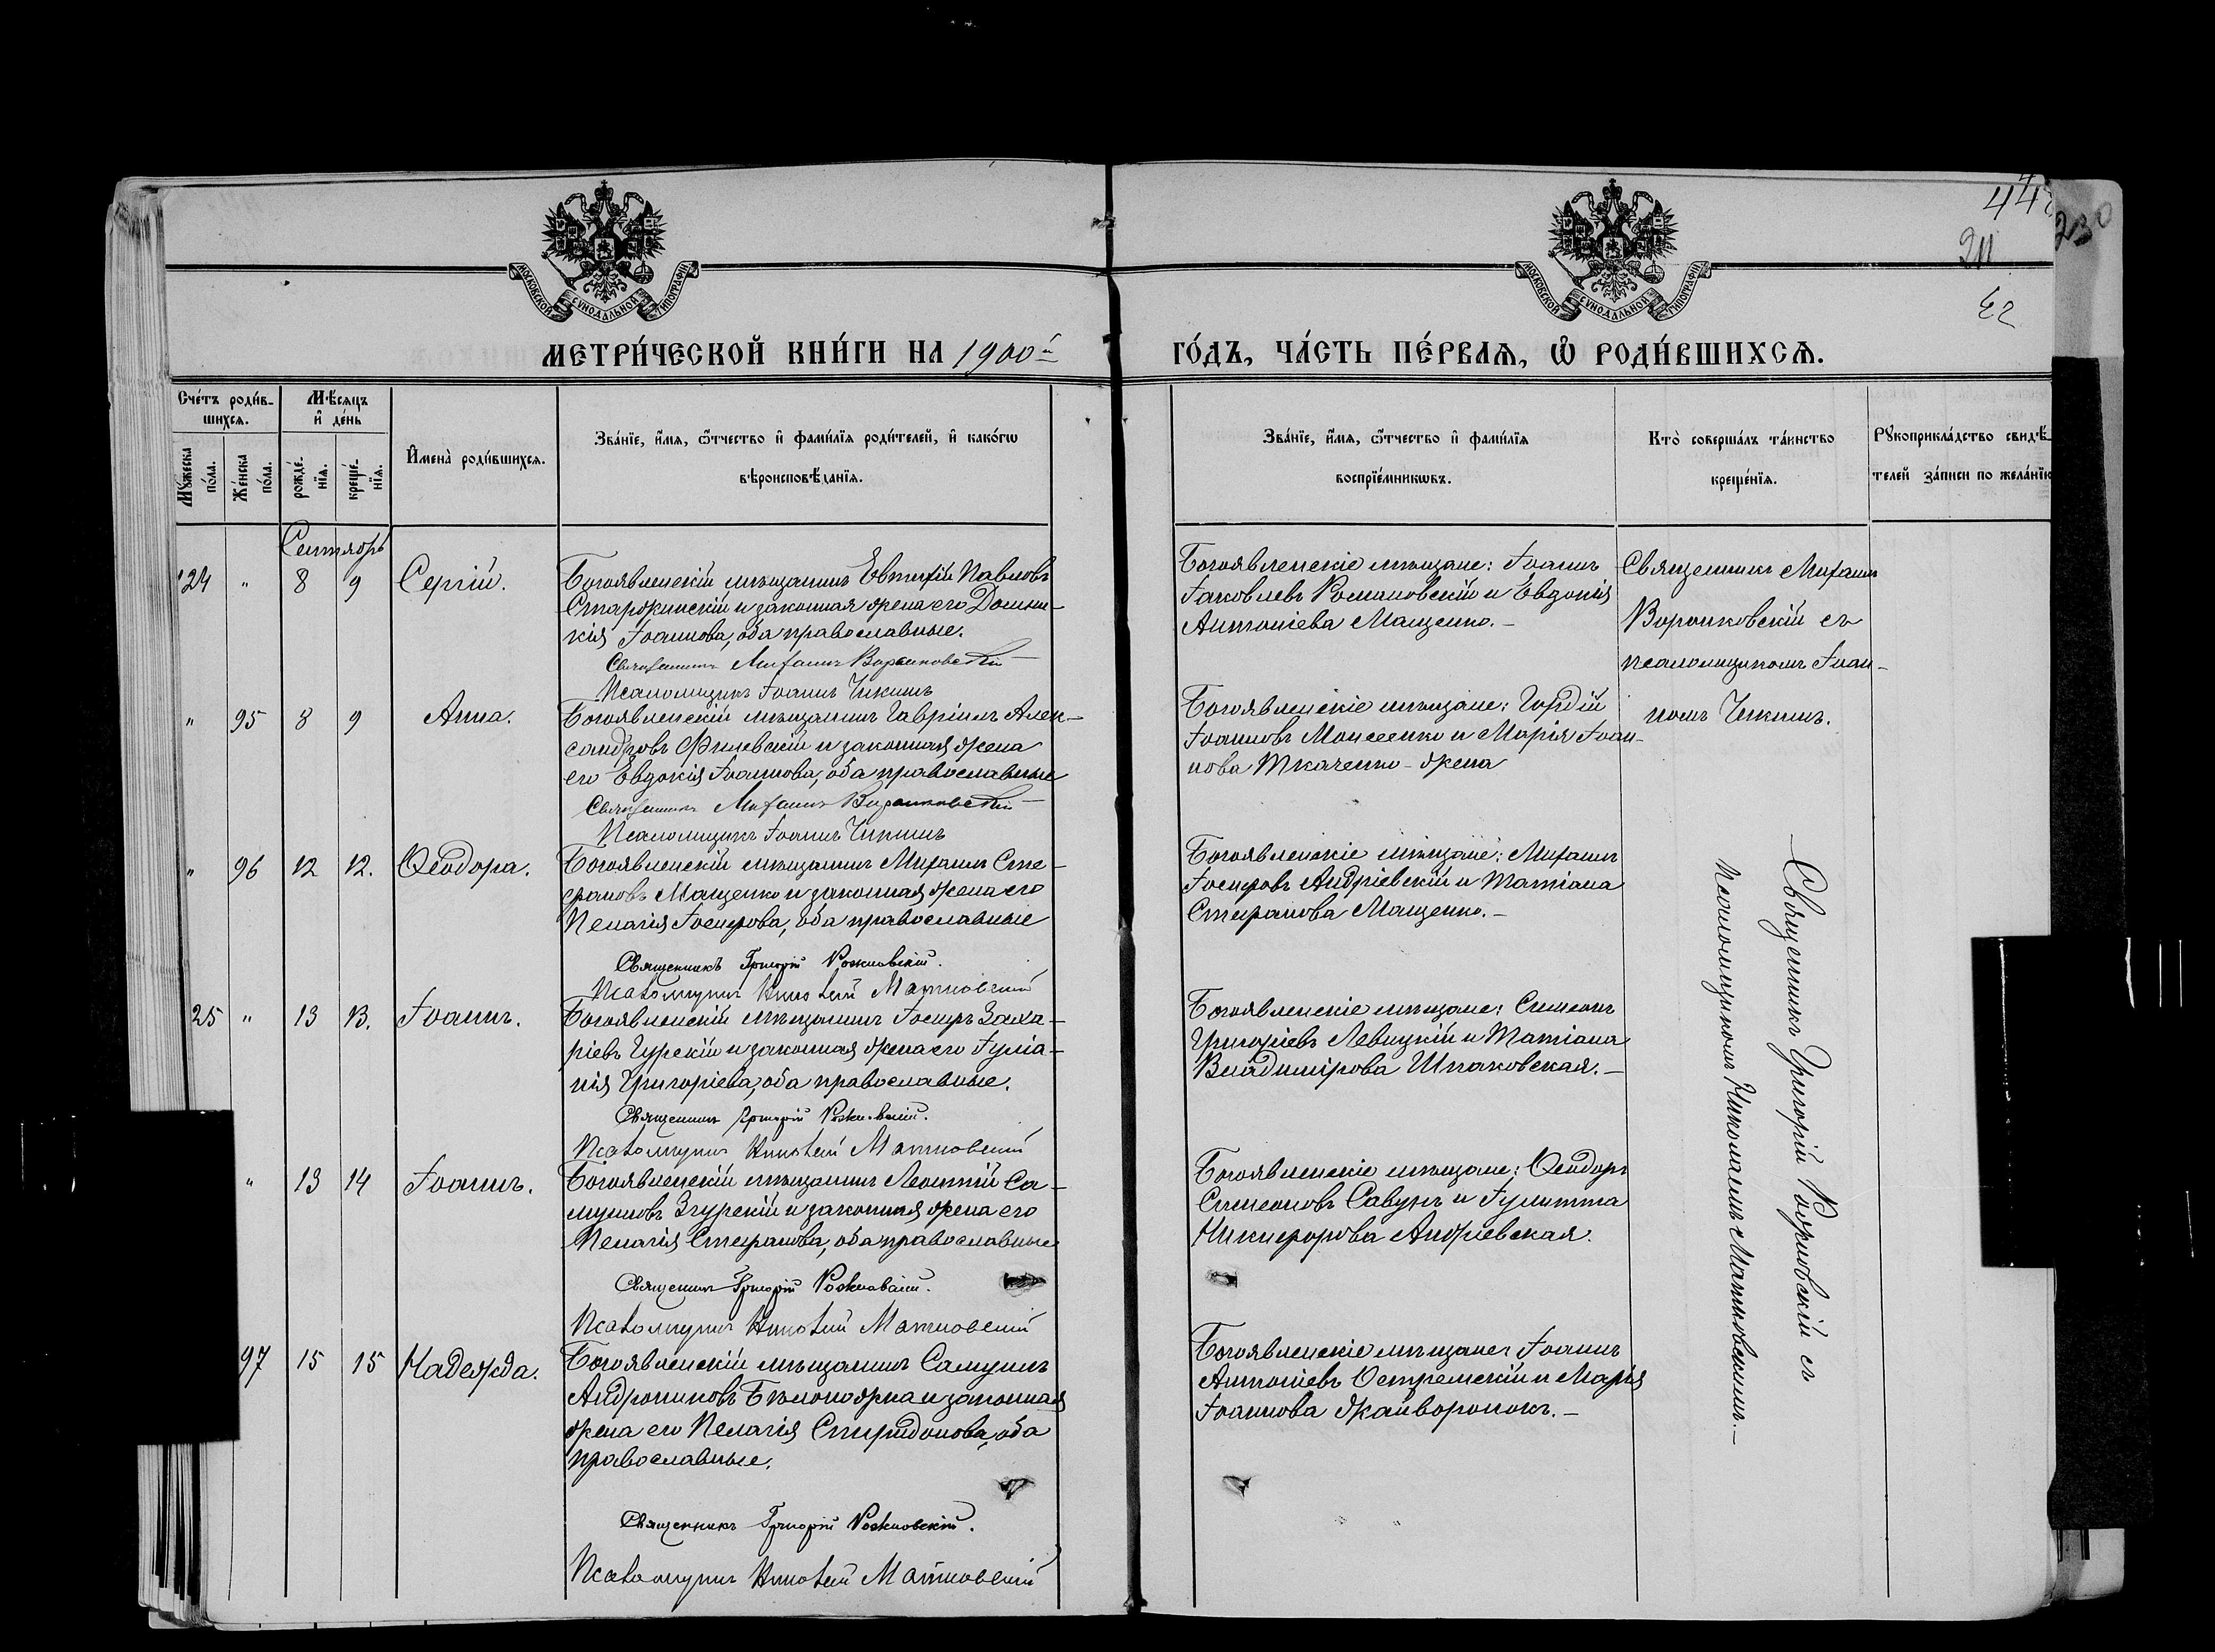 МОСКОВСКОЙ СѴНОДАЛЬНОЙ ТИПОГРАФІИ
МОСКОВСКОЙ СѴНОДАЛЬНОЙ ТИПОГРАФІИ
230
211
МЕТРИ́ЧЕСКОЙ КНИ́ГИ НА 1900й
ГО́ДЪ, ЧА́СТЬ ПЕ́РВАѦ, Ѡ҆ РОДИ́ВШИХСѦ.
Сче́тъ роди́в-
шихсѧ.
Мѣ́сѧцъ
и҆ де́нь
Мꙋ́жеска
по́ла.
Же́нска
по́ла.
рожде́-
нїѧ.
креще́-
нїѧ.
И҆мена̀ роди́вшихсѧ.
Зва́нїе, и҆́мѧ, ѻ҆́тчество и҆ фами́лїѧ роди́телей, и҆ како́гѡ
вѣроисповѣ́данїѧ.
Зва́нїе, и҆́мѧ, ѻ҆́тчество и҆ фами́лїѧ
воспрїе́мникѡвъ.
Кто̀ соверша́лъ та́инство
креще́нїѧ.
Рꙋкоприкла́дство свидѣ́-
телей за́писи по жела́нїю
Сентябрь
124 " 8 9 Сергій.
Богоявленскій мѣщанинъ Евтихій Павловъ
и законная жена его Домни-
кія Іоаннова, оба православные.
Священникъ Михаилъ Воронковскій
Псаломщикъ Іоаннъ Чикинъ
Богоявленскіе мѣщане: Іоаннъ
Іаковлевъ Романовскій и Евдокія
Антоніева Мащенко.-
Священникъ Михаилъ
Воронковскій съ
псаломщикомъ Іоан-
номъ Чикинъ.
" 95 8 9 Анна.
Богоявленскій мѣщанинъ Гавріилъ Алек-
сандровъ Филевскій и законная жена
его Евдокія Іоаннова, оба православные
Священникъ Михаилъ Воронковскій
Псаломщикъ Іоаннъ Чикинъ
Богоявленскіе мѣщане: Гордій
Іоанновъ Моисеенко и Марія Іоан-
нова Ткаченко-жена
" 96 12 12. Ѳеодора.
Богоявленскій мѣщанинъ Михаилъ Сте-
фановъ Мащенко и законная жена его
Пелагія Іосифова, оба православные
Священникъ Григорій
Псаломщикъ Николай Матковскій
Богоявленскіе мѣщане: Михаилъ
Іосифовъ Андріевскій и Татіана
Стефанова Мащенко.-
25 " 13 13. Іоаннъ.
Богоявленскій мѣщанинъ Іосифъ Заха-
ріевъ Гурскій и законная жена его Іуліа-
нія Григоріева, оба православные.
Священникъ Григорій
Псаломщикъ Николай Матковскій
Богоявленскіе мѣщане: Симеонъ
Григоріевъ Левицкій и Татіана
Владимірова Шпаковская.-
" 13 14 Іоаннъ.
Богоявленскій мѣщанинъ Леонтій Са-
муиловъ Згурскій и законная жена его
Пелагія Стефанова, оба православные
Священникъ Григорій
Псаломщикъ Николай Матковскій
Богоявленскіе мѣщане: Ѳеодоръ
Симеоновъ Савукъ и Іулитта
Никифорова Андріевская.
97 15 15 Надежда.
Богоявленскій мѣщанинъ Самуилъ
Андрониковъ Бѣлоножка и законная
жена его Пелагія Спиридонова, оба
православные.
Священникъ Григорій
Псаломщикъ Николай Матковскій
Богоявленскіе мѣщане: Іоаннъ
Антоніевъ Островскій и Марія
Іоаннова Жайворонокъ.-
Священникъ Григорій съ
псаломщикомъ Николаемъ Матковскимъ.-